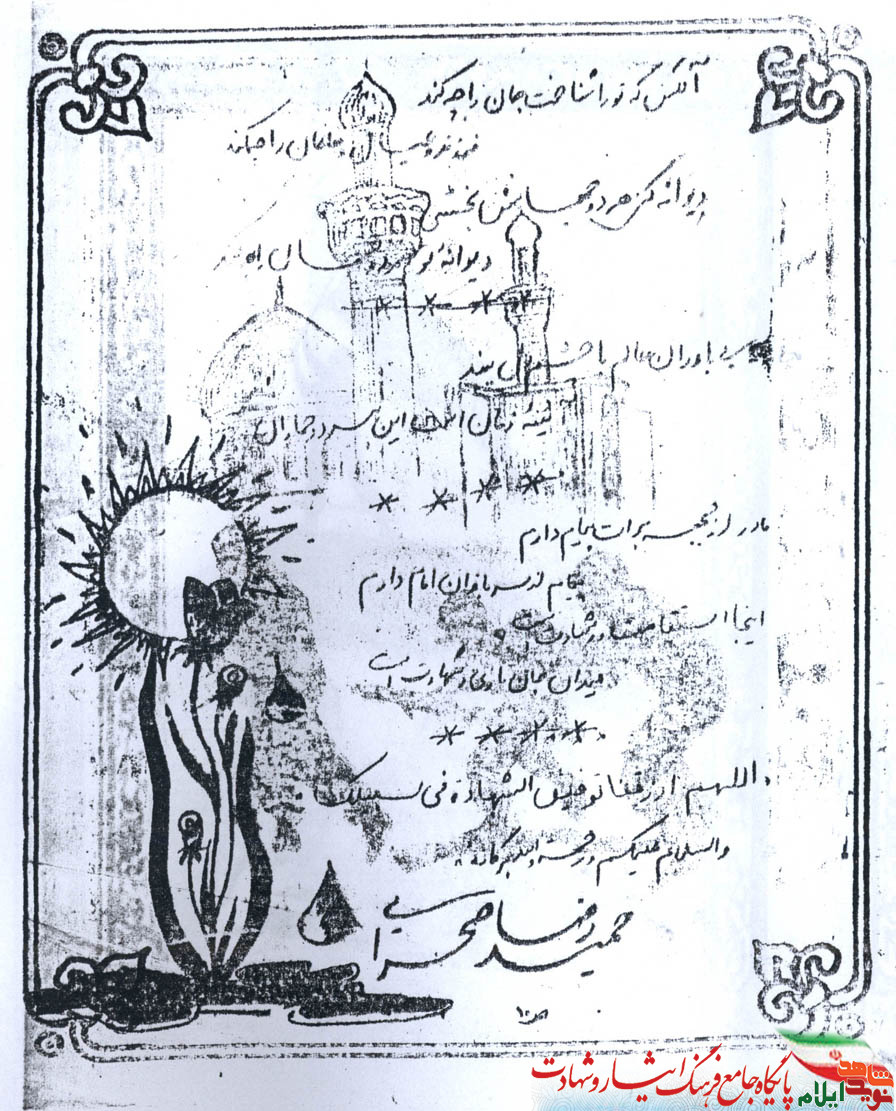 آنکس که تو را شناخت جان را چه کند
فرزند و عیال و خانمان را چه کند
دیوانه کنی هر دو جهانش بخشی
دیوانهٔ تو هر دو جهان را چه کند
* * * *
بی باوران عالم با
این سرو جماران
* * * *
مادر از جبهه برات پیام دارم
پیام از سربازان امام دارم
اینجا استقامت و رشادت است
میدان جان بازی و شهادت است
* * * *
اللهم ارزقنا توفیق الشهادة فی سبیلک
والسلام علیکم و رحمة الله و برکاته
حمیدرضا صحرایی
پایگاه جامع فرهنگ ایثار و شهادت
نوید شاهد ایلام